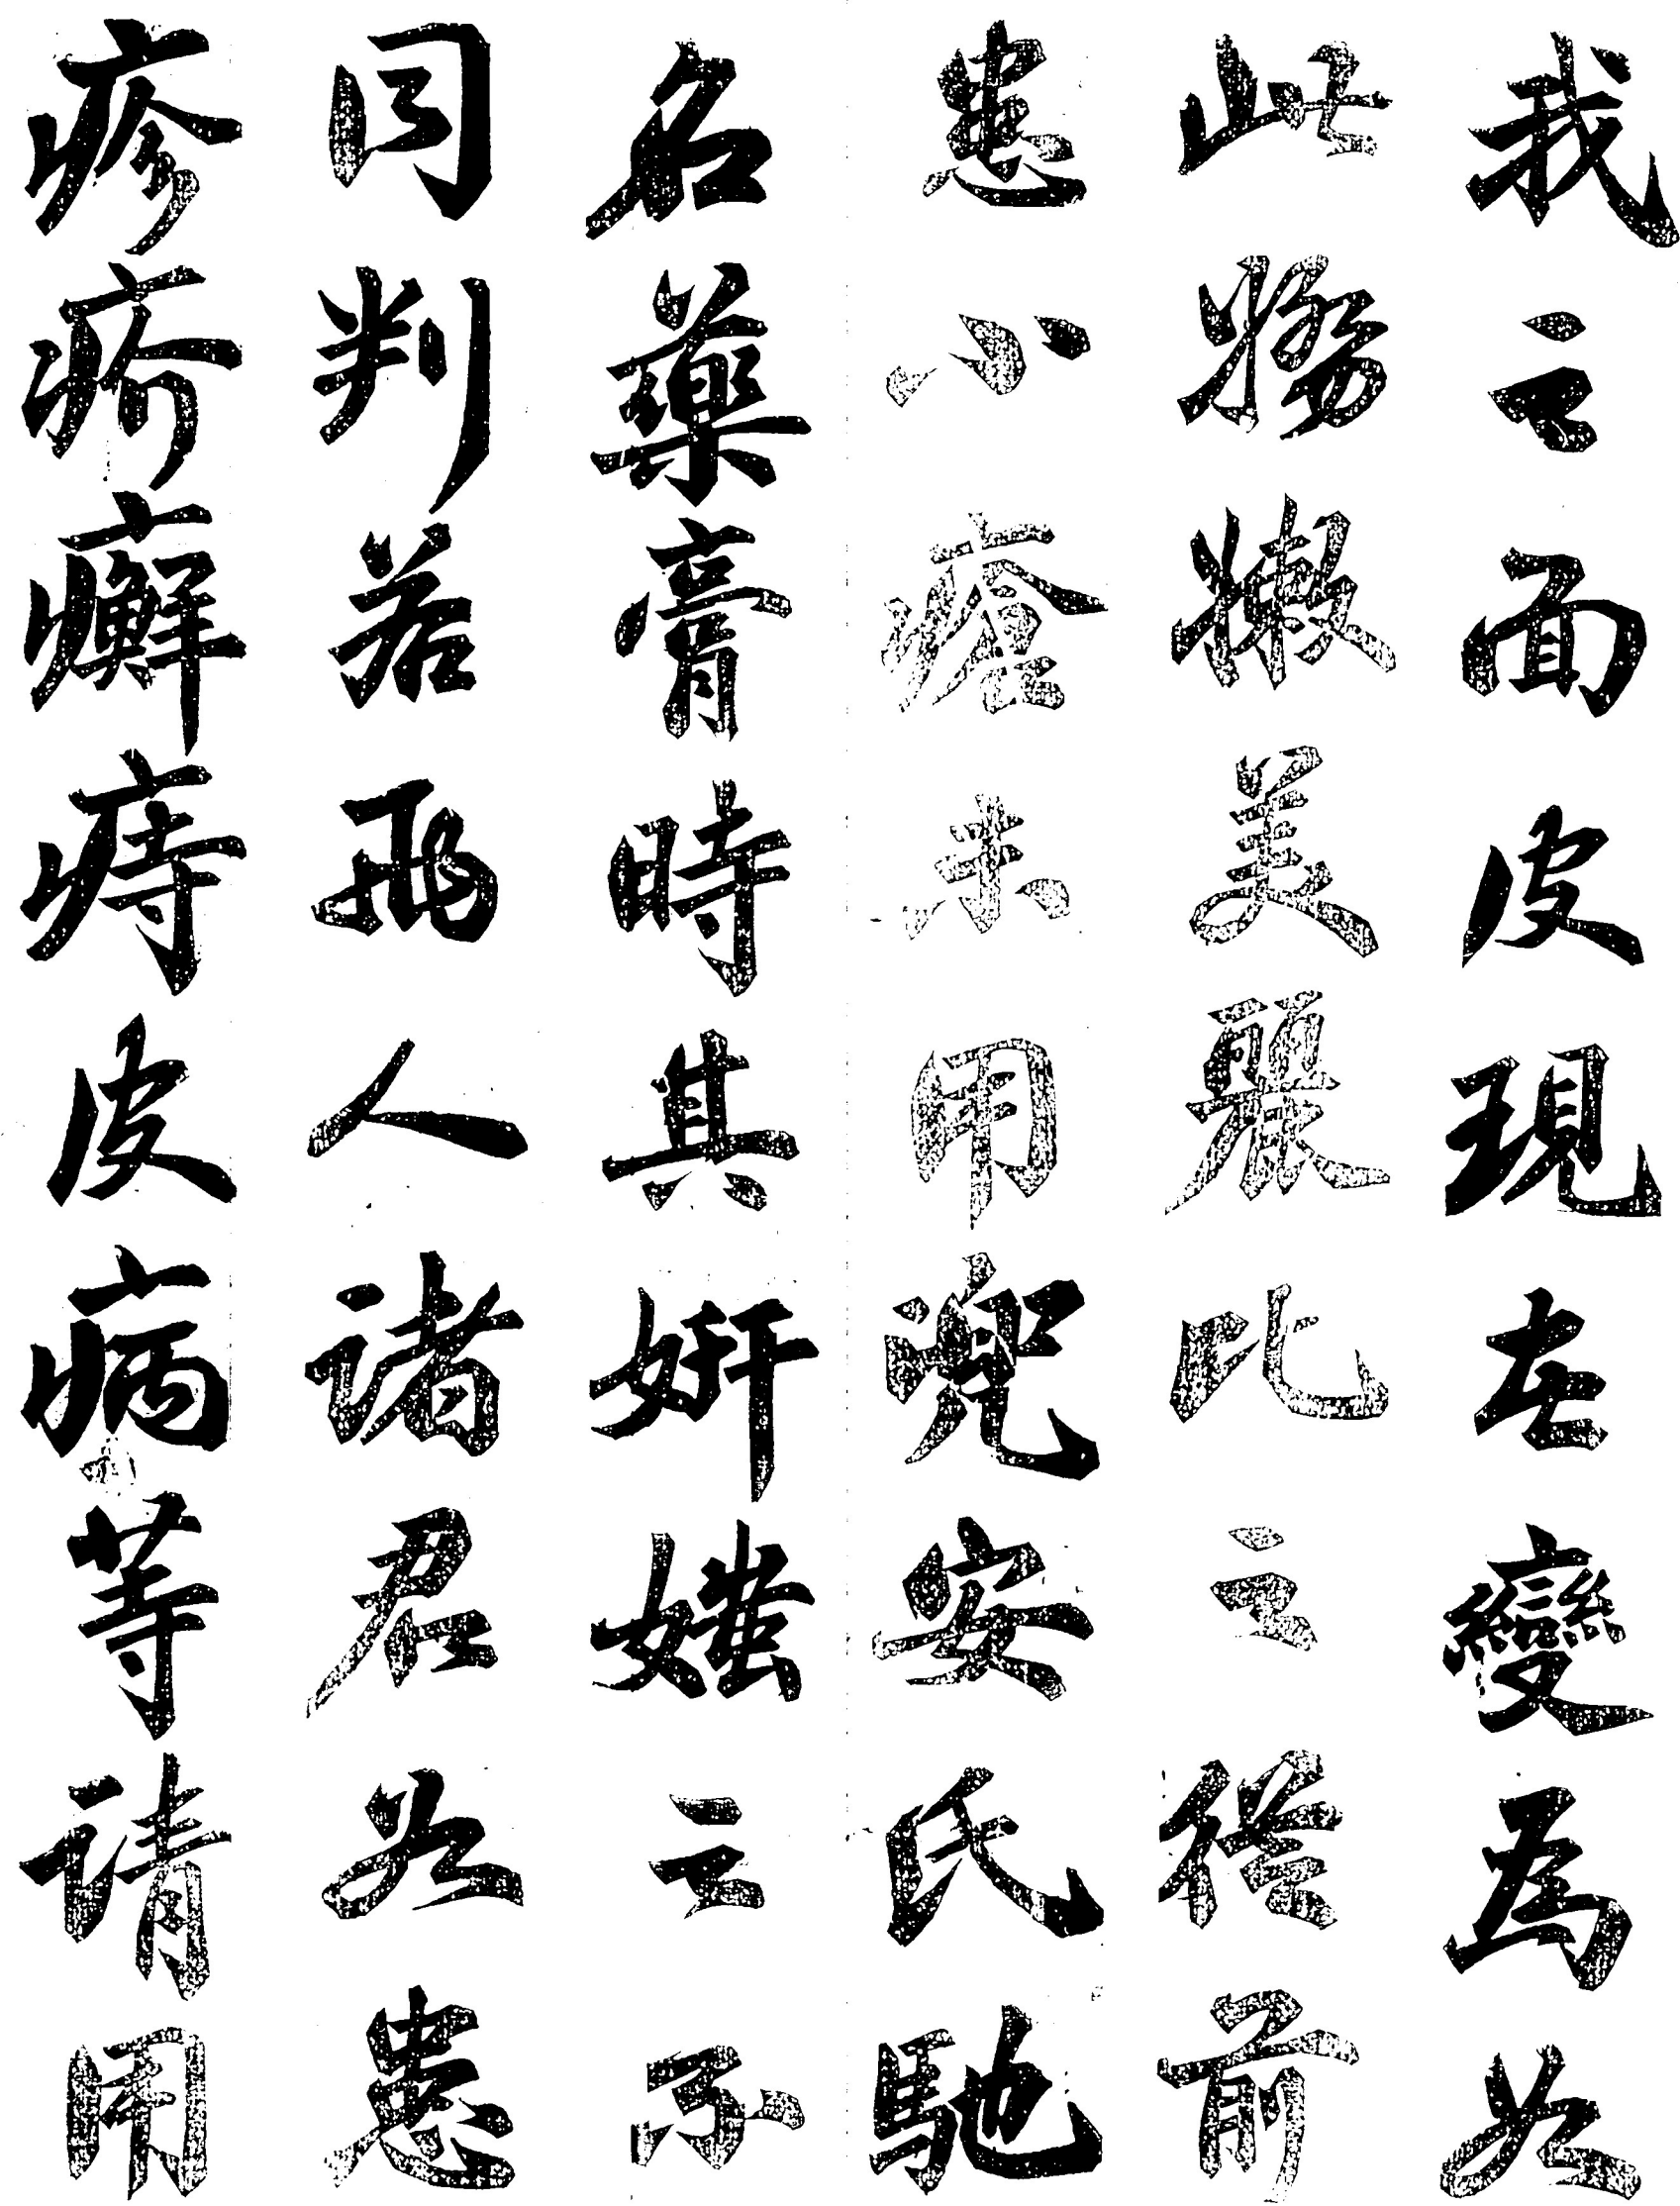 我之面皮現在變為如
此嫩美麗比之從前
患小瘡未用兜安氏馳
名藥膏時其妍媸之不
同判若兩人諸君如患
疹疥癬痔皮病等請用